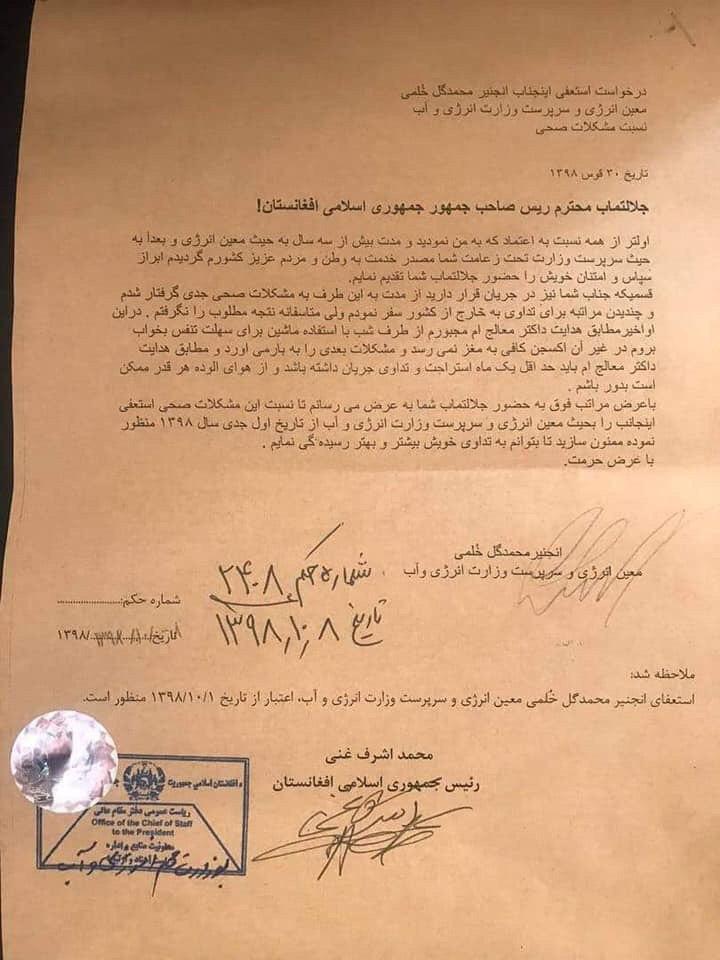 درخواست استعفی اینجناب انجنیر محمدگل خُلمی
معین انرژی و سرپرست وزارت انرژی و آب
نسبت مشکلات صحی
تاریخ ۳۰ قوس ۱۳۹۸
جلالتماب محترم ریس صاحب جمهور جمهوری اسلامی افغانستان!
اولتر از همه نسبت به اعتماد که به من نمودید و مدت بیش از سه سال به حیث معین انرژی و بعدأ به
حیث سرپرست وزارت تحت زعامت شما مصدر خدمت به وطن و مردم عزیز کشورم گردیدم ابراز
سپاس و امتنان خویش را حضور جلالتماب شما تقدیم نمایم.
قسمیکه جناب شما نیز در جریان قرار دارید از مدت به این طرف به مشکلات صحی جدی گرفتار شدم
و چندین مراتبه برای تداوی به خارج از کشور سفر نمودم ولی متاسفانه نتجه مطلوب را نگرفتم . دراین
اواخیرمطابق هدایت داکتر معالج ام مجبورم از طرف شب با استفاده ماشین برای سهلت تنفس بخواب
بروم در غیر آن اکسجن کافی به مغز نمی رسد و مشکلات بعدی را به بارمی اورد و مطابق هدایت
داکتر معالج ام باید حد اقل یک ماه استراحت و تداوی جریان داشته باشد و از هوای الوده هر قدر ممکن
است بدور باشم .
باعرض مراتب فوق به حضور جلالتماب شما به عرض می رسانم تا نسبت این مشکلات صحی استعفی
اینجانب را بحیث معین انرژی و سرپرست وزارت انرژی و آب از تاریخ اول جدی سال ۱۳۹۸ منظور
نموده ممنون سازید تا بتوانم به تداوی خویش بیشتر و بهتر رسیده گی نمایم .
با عرض حرمت.
انجنیرمحمدگل خُلمی
معین انرژی و سرپرست وزارت انرژی وآب
شماره حکم ۲۴۰۸
تاریخ ۱۳۹۸٫۱۰٫۸
شماره حکم:........................
تاریخ/................/۱۳۹۸
ملاحظه شد:
استعفای انجنیر محمدگل خُلمی معین انرژی و سرپرست وزارت انرژی و آب، اعتبار از تاریخ ۱۳۹۸/۱۰/۱ منظور است.
محمد اشرف غنی
رئیس جمهوری اسلامی افغانستان
د افغانستان اسلامی جمهوریت
ریاست عمومی دفتر مقام عالی
Office of the Chief of Staff
to the President
معاونیت منابع و اداره